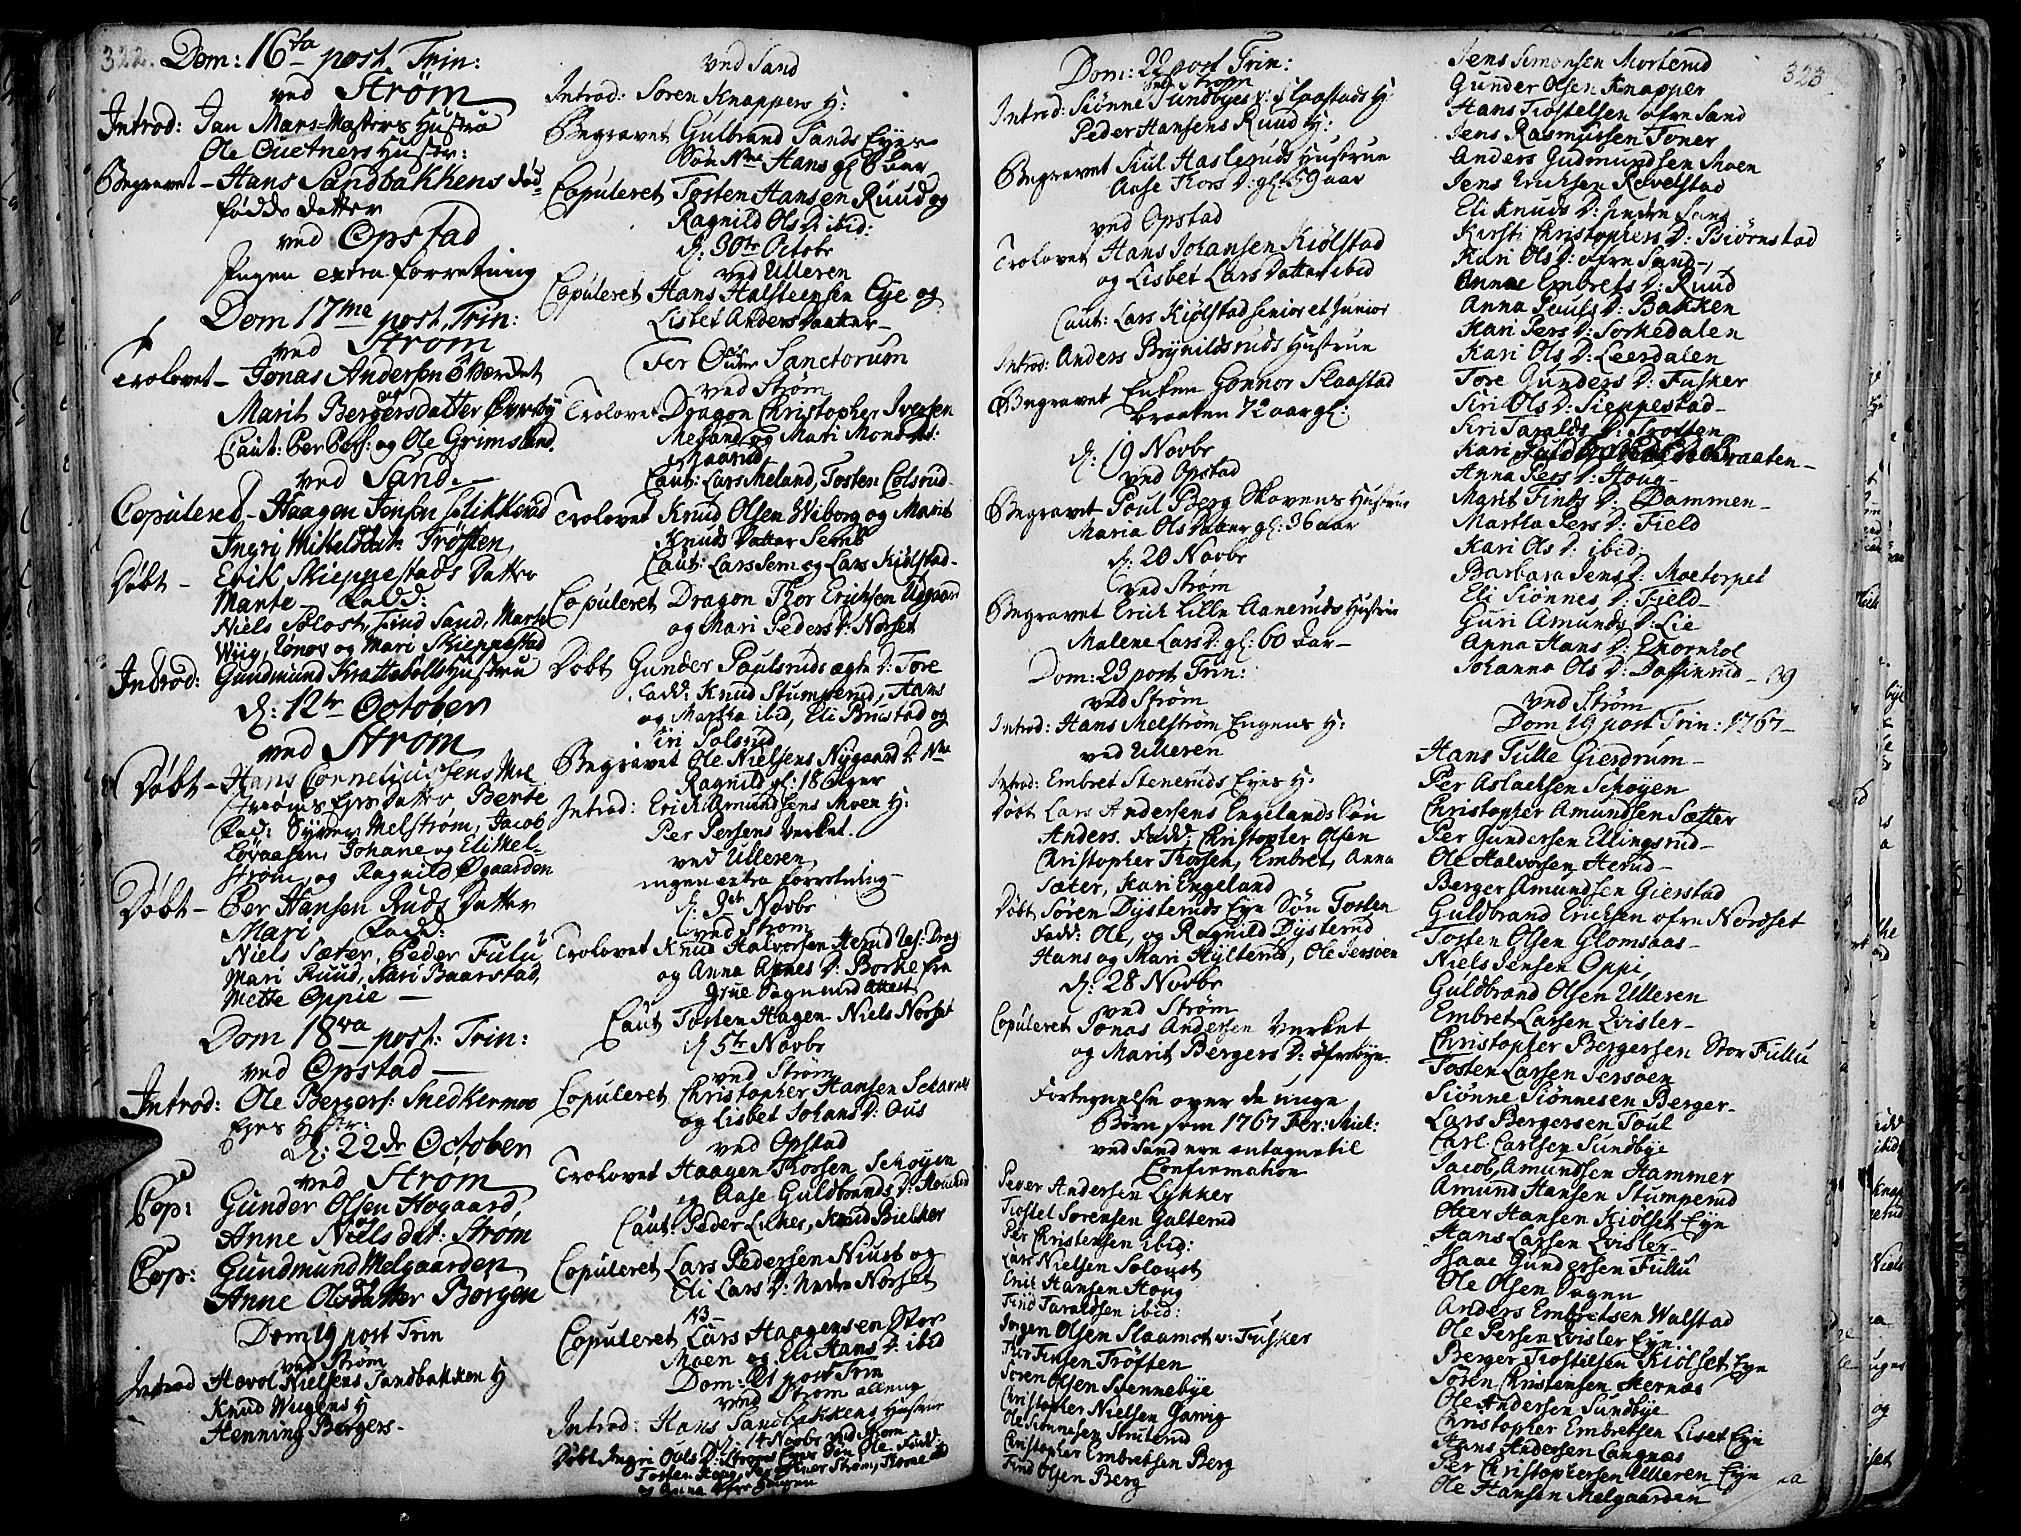 322.
Dom: 16ta post Trin:
ved Strøm
Introd: Jan Mars=Masters Hustrue
Ole Quetners Hustr:
Begravet – Hans Sandbakkens død=
fødde datter
ved Opstad
Ingen extra forretning
Dom 17me post Trin:
ved Strøm
Trolovet – Jonas Andersen Værket
og
Marit Bergersdatter Øvreby
Caut: Per Pers: og Ole Grimsrud.
ved Sand.
Copuleret – Haagen Jensen
Ingri Mikelsdatr Trøften
Døbt – Erik Skieppestads Datter
Mante Fadd:
Niels Solost, Find Sand, Marte
Wiig, Tønov og Mari Skieppestad
Introd: Gundmund Krattebølls Hustrue
d: 12te October
ved Strøm
Døbt – Hans Corneliussens Mel=
strøms Eyes Datter Berte
Fad: Syver Melstrøm, Jacob
Løvaasen, Johane og Eli Mel=
strøm, og Ragnild Øgaarden
Døbt – Per Hansen Ruds Datter
Mari Fad:
Niels Sæter, Peder Fulu
Mari Ruud, Kari Baarstad,
Mette Oppie –
Dom 18va post: Trin:
ved Opstad –
Introd: Ole Bergers: Snedkermoe
Eyes Hustr:
d: 22de October
ved Strøm
Cop: Gunder Olsen Hogaard,
og
Anne Nielsdat: Strøm
Cop: Gundmund Melgaarden
Anne Olsdatter Borgen
Dom 19 post Trin
ved Strøm
Introd Havol Nielsens Sandbakken H
Knud Wugens H
Henning Bergers –
ved Sand
Introd: Soren Knappers H:
Begravet Gulbrand Sands Eyes
Søn Nme Hans gl 8 aar
Copuleret Tosten Hansen Ruud og
Ragnild Ols D: ibid:
d: 30te Octobr
ved Ulleren
Copuleret Hans Halsteensen Eye og
Lisbet Anders Datter –
Fer Omn Sanctorum
ved Strøm
Trolovet Dragon Christopher Iversen
Meland og Mari Monsens:
Maarud
Caut: Lars Meland, Tosten Colsrud –
Trolovet Knud Olsen Wiborg og Marit
Knuds Datter Semb
Caut: Lars Sem og Lars Kiølstad –
Copuleret Dragon Thor Erichsen Udgaard
og Mari Peders D: Norset
Døbt Gunder Paulsruds ægte D: Tore
Fadd: Knud Stumperud, Hans
og Martha ibid, Eli Brustad og
Siri Solsrud
Begravet Ole Nielsens Nygaard D: Nme
Ragnild gl: 18 uger
Introd: Erich Amundsens Moen H:
Per Persens Verket.
ved Ulleren
ingen extra forretning –
d: 3de Novbr
ved Strøm
Trolovet Knud Halvorsen Herud Res: Drag:
og Anna Arnes D: Borke fra
Grue Sogn med Attest
Caut Tosten Hagen Niels Norset
d 5te Novbr
ved Strøm
Copuleret Christopher Hansen Scharnes
og Lisbet Johans D: Ous
ved Opstad
Trolovet Haagen Thorsen Schøyen
og Aase Guldbrands D:
Caut: Peder Likes, Knud Bielker
Copuleret Lars Pedersen Niusb og
Eli Lars D: Nedre Norset
13 –
Copuleret Lars Haagensen Stor
Moen og Eli Hans D: ibid
Dom: 21 post Trin
ved Strøm allene
Introd: Hans Sandbakkens Hustrue
d: 14 Novbr ved Strøm
Døbt Ingri Ouls D: Strøms Eyes Søn Ole. Fadd:
Tosten Haug, Strøm,
og Anna
Dom: 22 post Trin:
ved Strøm
Introd: Siønne Sundbyes v: Slaastads H:
Peder Hansens Ruud H:
Begravet Siul Hasleruds Hustrue
Aase Thors D: gl: 59 aar
ved Opstad
Trolovet Hans Johansen Kiølstad
og Lisbet Lars Datter ibid
Caut: Lars Kiølstad senior et junior
Introd: Anders Brynildsruds Hustrue
Begravet Enken Gonnor Slaastad
braaten 72 aar gl:
d: 19 Novbr
ved Opstad
Begravet Poul Berg Skovens Hustrue
Maria Ols Datter gl: 36 aar
d: 20 Novbr
ved Strøm
Begravet Erich Lille Aaneruds Hustrue
Malene Lars D: gl: 60 aar –
Dom: 23 post Trin:
ved Strøm
Introd: Hans Melstrøm Engens H:
ved Ulleren
Introd: Embret Steneruds Eyes H:
Døbt Lars Andersens Engelands Søn
Anders. Fadd: Christopher Olsen
Christopher Thorsen, Embret, Anna
Sæter, Kari Engeland
Døbt Søren Dysteruds Eye Søn Tosten
Fadd: Ole, og Ragnild Dysterud
Hans og Mari Hylterud, Ole Sersøen
d: 28 Novbr
ved Strøm
Copuleret Jonas Andersen Verket
og Marit Bergers D: øfreby
Fortegnelse over de unge
Børn som 1767 Fer: Mich:
ved Sand ere antagne til
Confirmation
Peder Andersen Lykker
Trostel Sorensen Galterud
Per Christensen ibid:
Lars Nielsen Soloust
Erik Hansen Houg
Find Taraldsen ibid:
Jorgen Olsen Slaamot v: Fusker
Thor Finsen Trøften
Soren Olsen Svennebye
Christopher Nielsen Garvig
Ole Siønnesen Struterud
Christopher Embretsen Berg
Find Olsen Berg
323
Jens Simonsen Morterud
Gunder Olsen Knapper
Hans Trostelsen øfre Sand
Jens Rasmussen Toner
Anders Gudmundsen Moen
Jens Erichsen Revelstad
Eli Knuds D: Indre Sand
Kirsti Christophers D: Biørnstad
Kari Ols D: øfre Sand –
Annae Embrets D: Ruud
Anna Pouls D: Bakken
Kari Pers D: Sorkedalen
Kari Ols D: Leerdalen
Tore Gunders D: Fusker
Siri Ols D: Sieppestad –
Siri Taralds D: Trøften
Kari Braaten –
Anna Pers D: Houg –
Marit Finds D: Dammen –
Martha Pers D: Field
Kari Ols D: ibid:
Barbara Jens D: Moetorpet
Eli Siønnes D: Field –
Guri Amunds D: Lie
Anna Hans D: Thornhol
Johanna Ols D: Daffinrud – 39
ved Strøm
Dom 19 post Trin: 1767 –
Hans Tulle Gierdrum –
Per Aslachsen Schøyen
Christopher Amundsen Sætter
Per Gundersen Ellingsrud –
Ole Halvorsen Herud –
Berger Amundsen Gierstad
Guldbrand Erichsen øfre Nordset
Tosten Olsen Glomsaas –
Niels Jensen Oppi,
Guldbrand Olsen Ulleren
Embret Larsen Qvisler –
Christopher Bergersen Stor Fullu
Tosten Larsen Sersøen
Siønne Siønnesen Berger –
Lars Bergersen Toul
Carl: Carlsen Sundbye
Jacob Amundsen Hammer
Amund Hansen Stumperud
Otter Hansen Kiølset Eye
Hans Larsen Qvisler –
Isaac Gundersen Fullu
Ole Olsen Pagen
Anders Embretsen Walstad
Ole Persen Qvisler Eye
Berger Trostelsen Kiølset Eye
Soren Christensen Hernæs
Ole Andersen Sundbye
Christopher Embretsen Liset Eye
Hans Andersen Langnæs
Per Christophersen Ulleren Eye
Ole Hansen Melgaarden